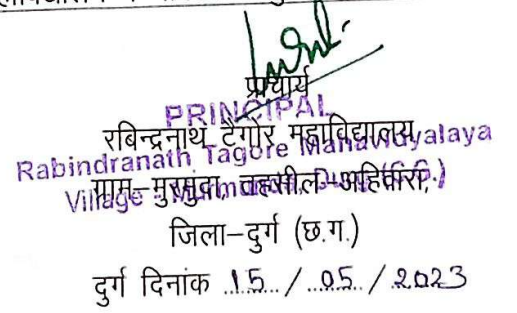 प्राचार्य
PRINCIPAL
रबिन्द्रनाथ टैगोर महाविद्यालय
Rabindranath Tagore Mahavidyalaya
ग्राम–मुरमुदा, तहसील–अहिवारा,
Village
जिला–दुर्ग (छ.ग.)
दुर्ग दिनांक 15 / 05 / 2023